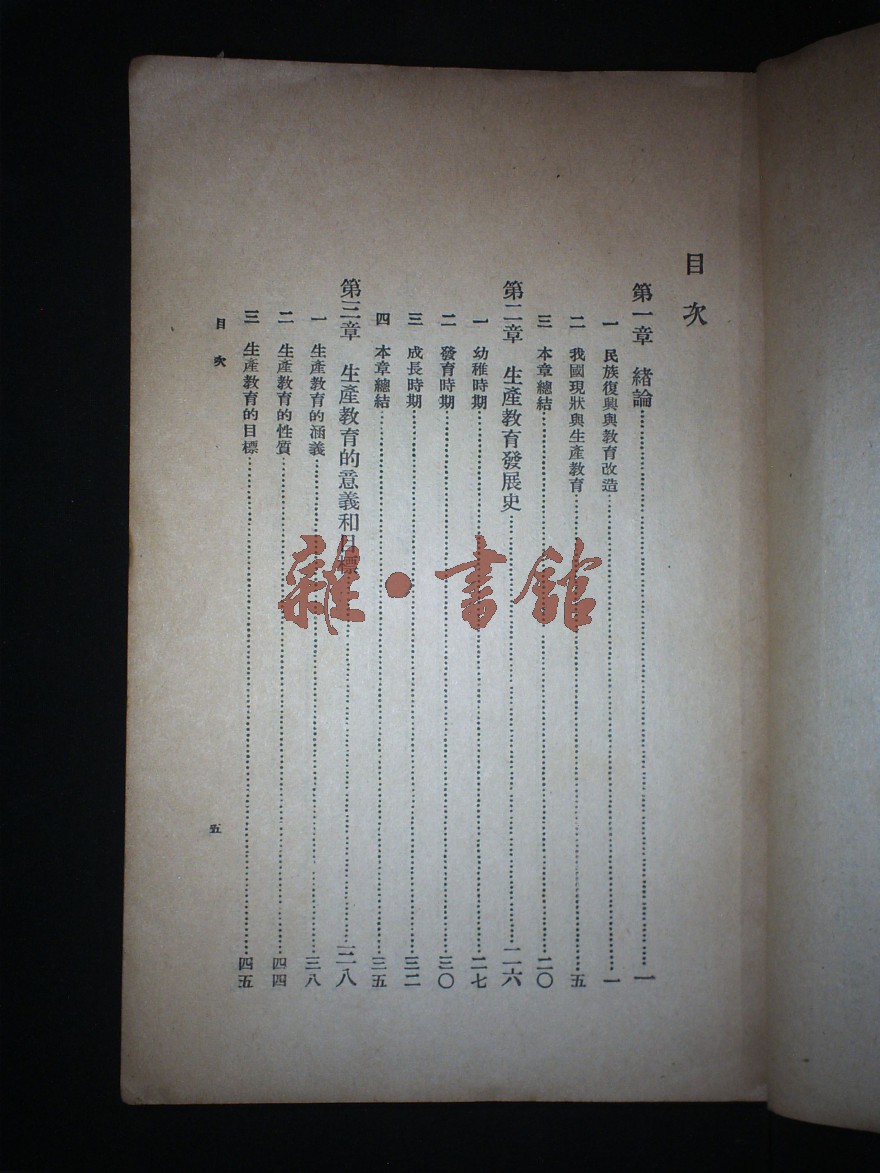 目次
第一章 緒論…………一
一 民族復興與教育改造…………一
二 我國現狀與生產教育…………五
三 本章總結…………二〇
第二章 生產教育發展史…………二六
一 幼稚時期…………二七
二 發育時期…………三〇
三 成長時期…………三二
四 本章總結…………三五
第三章 生產教育的意義和目標…………三八
一 生產教育的涵義…………三八
二 生產教育的性質…………四四
三 生產教育的目標…………四五
目次
五
雜·書館